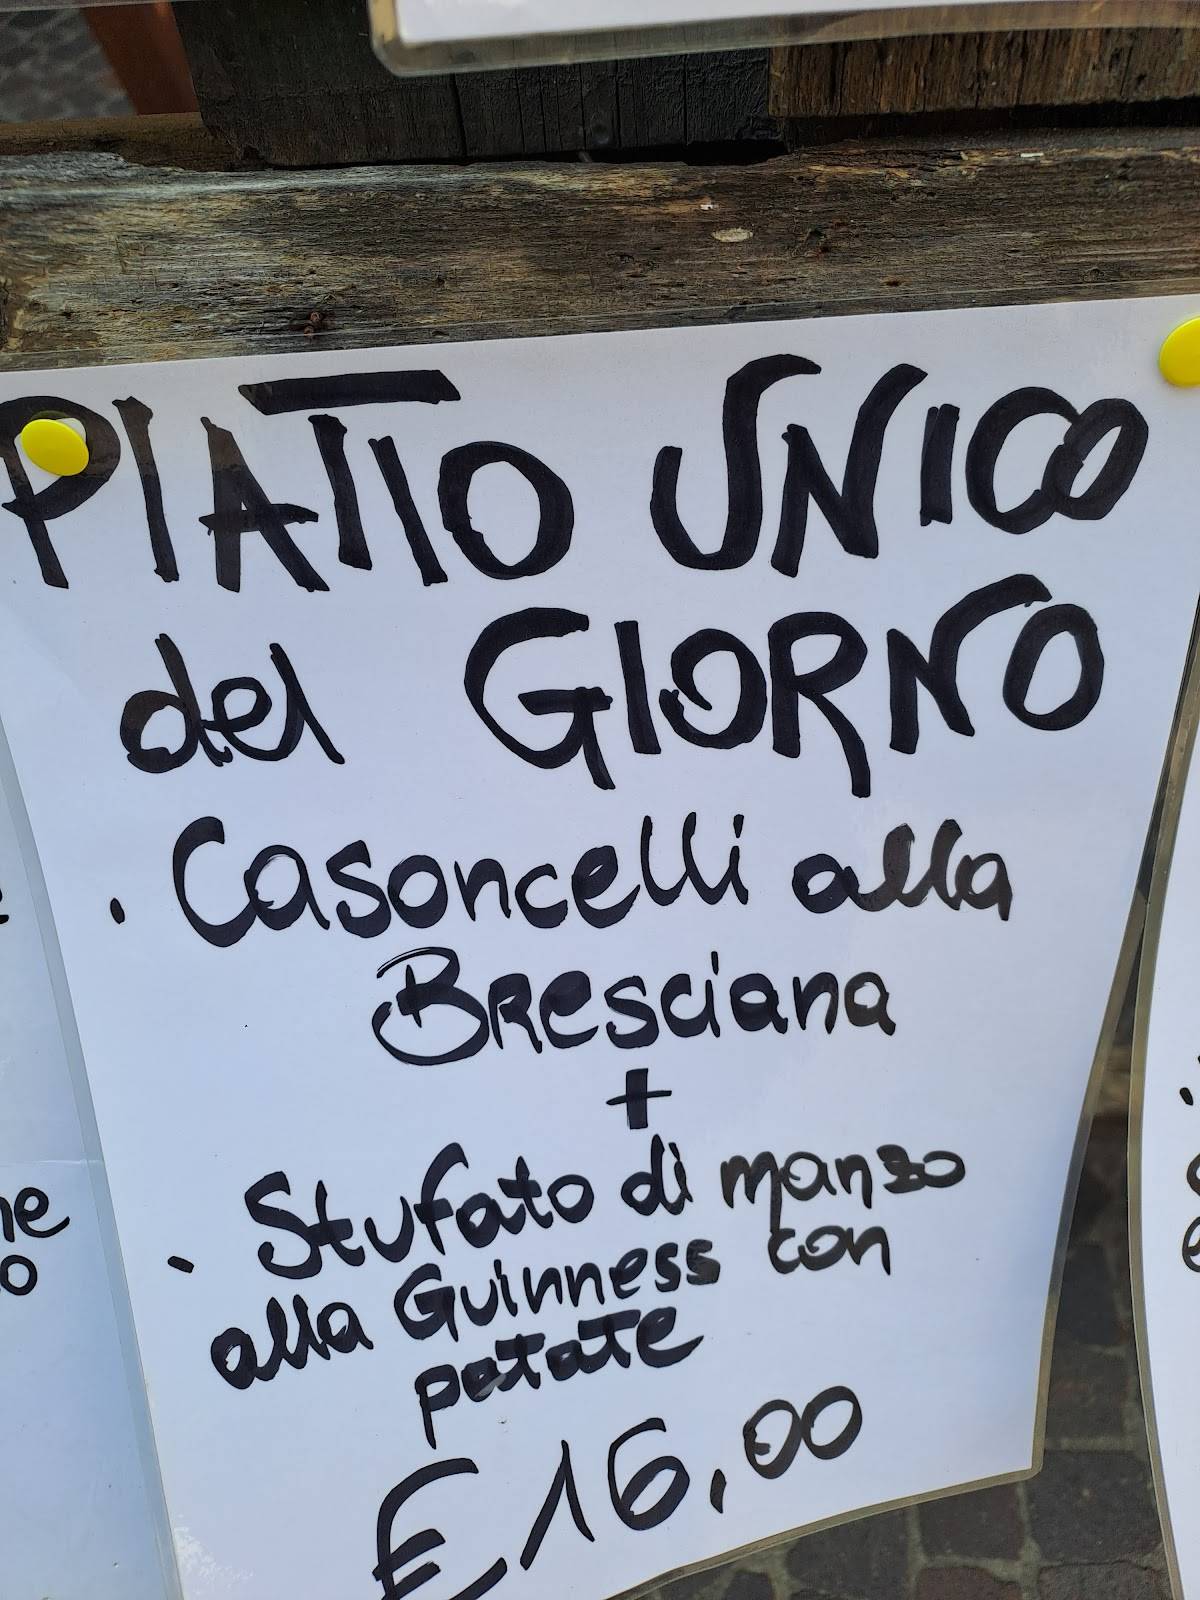 PIATTO UNICO
del GIORNO
· Casoncelli alla
Bresciana
+
· Stufato di manzo
alla Guinness con
patate
€ 16,00